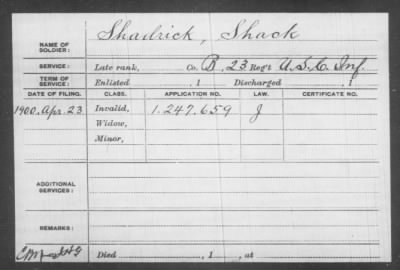 NAME OF SOLDIER: Shadrick, Shack
SERVICE: Late rank, Co. B, 23 Reg't U.S.C. Inf.
TERM OF SERVICE: Enlisted , 1 Discharged , 1
DATE OF FILING. CLASS. APPLICATION NO. LAW. CERTIFICATE NO.
1900. Apr. 23 Invalid, 1.247.659 J
Widow,
Minor,
ADDITIONAL SERVICES:
REMARKS:
Died , 1 , at